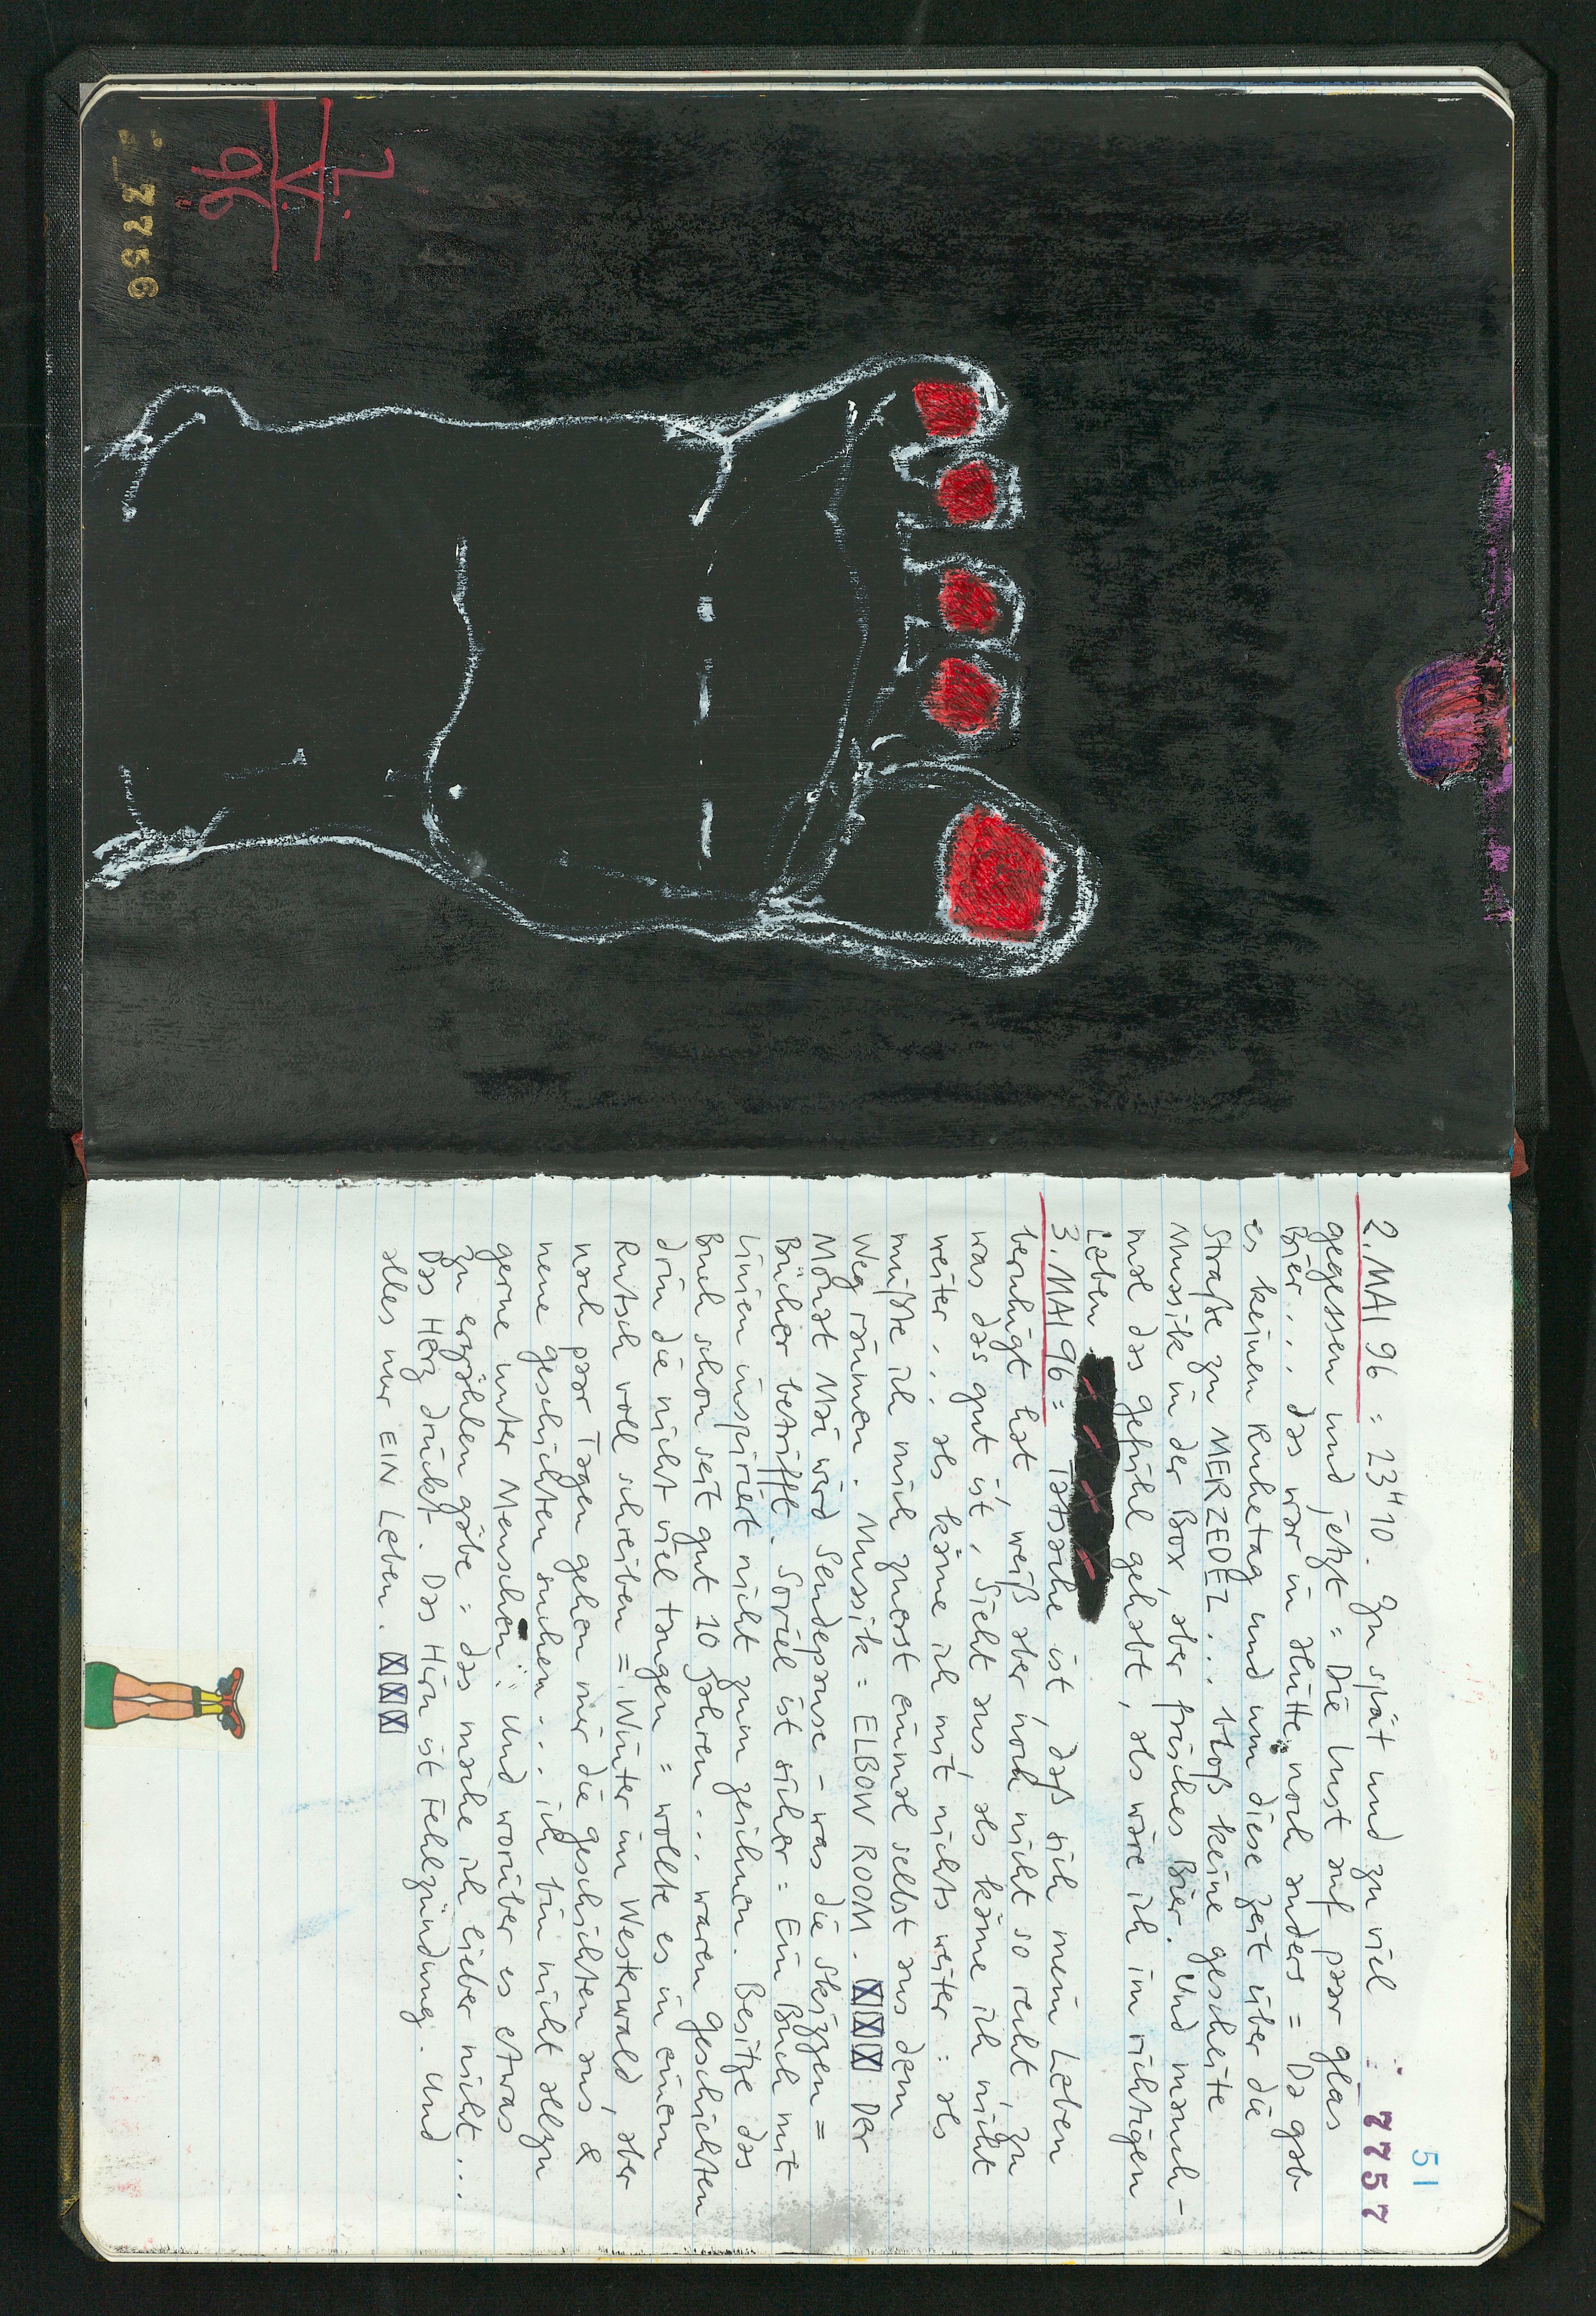 7.
V.
96
7756
51
7757
2. MAI 96 = 23H10. Zu spät und zu viel
gegessen und jetzt = Die Lust auf paar Glas
Bier... das war in Hütte noch anders = Da gab
es keinen Ruhetag und um diese Zeit über die
Straße zu MERZEDEZ... bloß keine gescheite
Mussik in der Box, aber frisches Bier. Und manch-
mal das Gefühl gehabt, als wäre ich im richtigen
Leben
3. MAI 96 = Tatsache ist, daß sich mein Leben
beruhigt hat, weiß aber noch nicht so recht, zu
was das gut ist, Sieht aus, als käme ich nicht
weiter... als käme ich mit nichts weiter: als
müßte ich mich zuerst einmal selbst aus dem
Weg räumen. Mussik = ELBOW ROOM. XXX Der
Monat Mai wird Sendepause - was die Skizzen =
Bücher betrifft. Soviel ist sicher = Ein Buch mit
Linien inspiriert nicht zum zeichnen. Besitze das
Buch schon seit gut 10 Jahren... waren Geschichten
drin die nicht viel taugen = wollte es in einem
Rutsch voll schreiben = Winter im Westerwald, aber
nach paar Tagen gehen mir die Geschichten aus &
neue Geschichten suchen... ich bin nicht allzu
gerne unter Menschen: Und worüber es etwas
zu erzählen gäbe: das mache ich lieber nicht...
Das Herz drückt. Das Hirn ist Fehlzündung. Und
alles nur EIN Leben. XXX